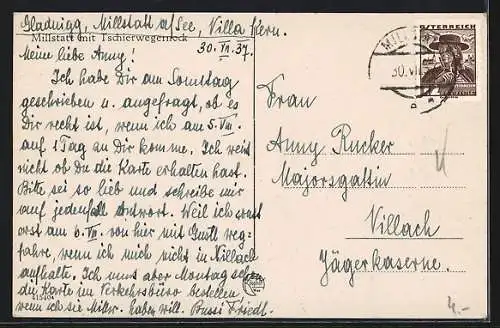 Gladnigg, Millstatt a/See, Villa Kern.
Millstatt mit Tschierwegernock
30. VII. 37.
Meine liebe Anny!
Ich habe Dir am Sonntag
geschrieben u. angefragt, ob es
Dir recht ist, wenn ich am 5. VIII.
auf 1 Tag an Dir komme. Ich weiß
nicht ob Du die Karte erhalten hast.
Bitte sei so lieb und schreibe mir
auf jedenfall Antwort. Weil ich sonst
erst am 6. VIII. von hier mit Gustl weg-
fahre, wenn ich mich nicht in Villach
aufhalte. Ich muss aber Montag schon
die Karte im Verkehrsbüro bestellen,
wenn ich sie Mittw. haben will. Bussi Friedl.
41540
ÖSTERREICH
MILLSTATT
30. VII
Frau
Anny Rucker
Majorsgattin
Villach
Jägerkaserne.
4.-